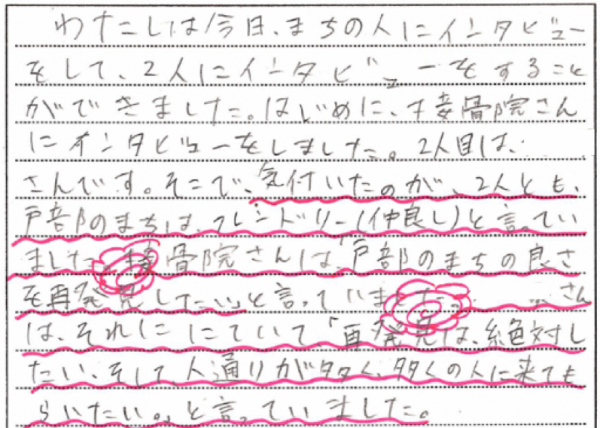 わたしは今日、まちの人にインタビュー
をして、2人にインタビューをすること
ができました。はじめに、接骨院さん
にインタビューをしました。2人目は、
さんです。そこで、気付いたのが、2人とも、
戸部のまちは、フレンドリー(仲良し)と言ってい
ました。接骨院さんは「戸部のまちの良さ
を再発見したい」と言っていま さん
は、それににていて、「再発見は、絶対し
たい、そして、人通りが多く、多くの人に来ても
らいたい。」と言っていました。